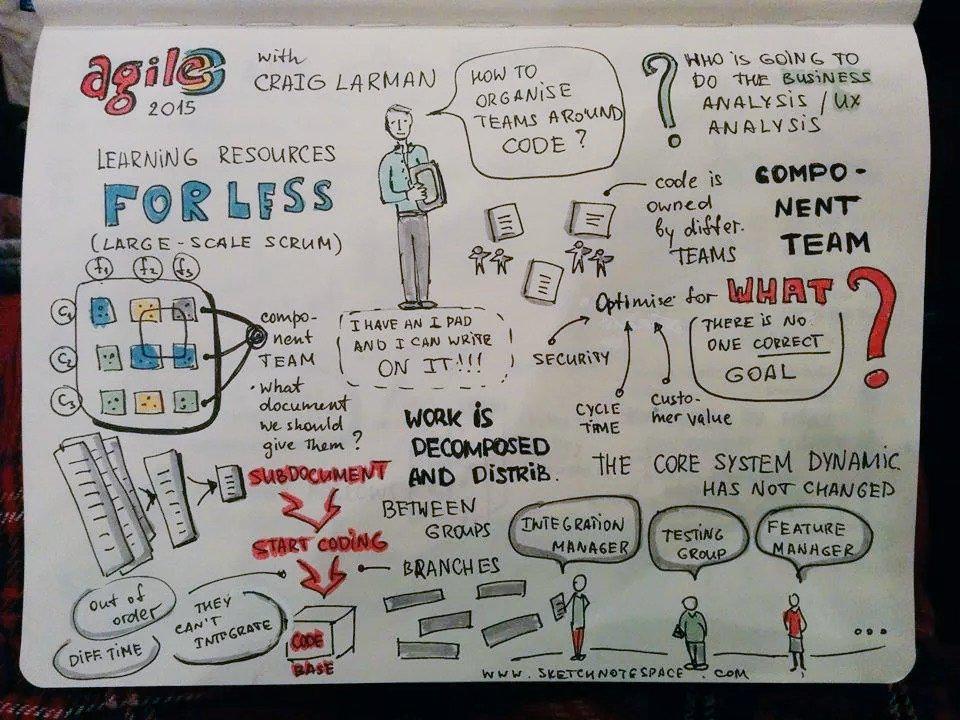 agile
2015
with
CRAIG LARMAN
HOW TO
ORGANISE
TEAMS AROUND
CODE?
?
WHO IS GOING TO
DO THE BUSINESS
ANALYSIS / UX
ANALYSIS
LEARNING RESOURCES
FOR LESS
(LARGE-SCALE SCRUM)
code is
owned
by differ.
TEAMS
COMPO-
NENT
TEAM
f1 f2 f3
C1
C2
C3
compo-
nent
TEAM
• what
document
we should
give them?
I HAVE AN I PAD
AND I CAN WRITE
ON IT!!!
Optimise for WHAT ?
SECURITY
CYCLE
TIME
custo-
mer value
THERE IS NO
ONE CORRECT
GOAL
WORK IS
DECOMPOSED
AND DISTRIB.
BETWEEN
GROUPS
THE CORE SYSTEM DYNAMIC
HAS NOT CHANGED
SUBDOCUMENT
START CODING
BRANCHES
CODE
BASE
out of
order
DIFF. TIME
THEY
CAN'T
INTEGRATE
INTEGRATION
MANAGER
TESTING
GROUP
FEATURE
MANAGER
...
WWW.SKETCHNOTESPACE.COM